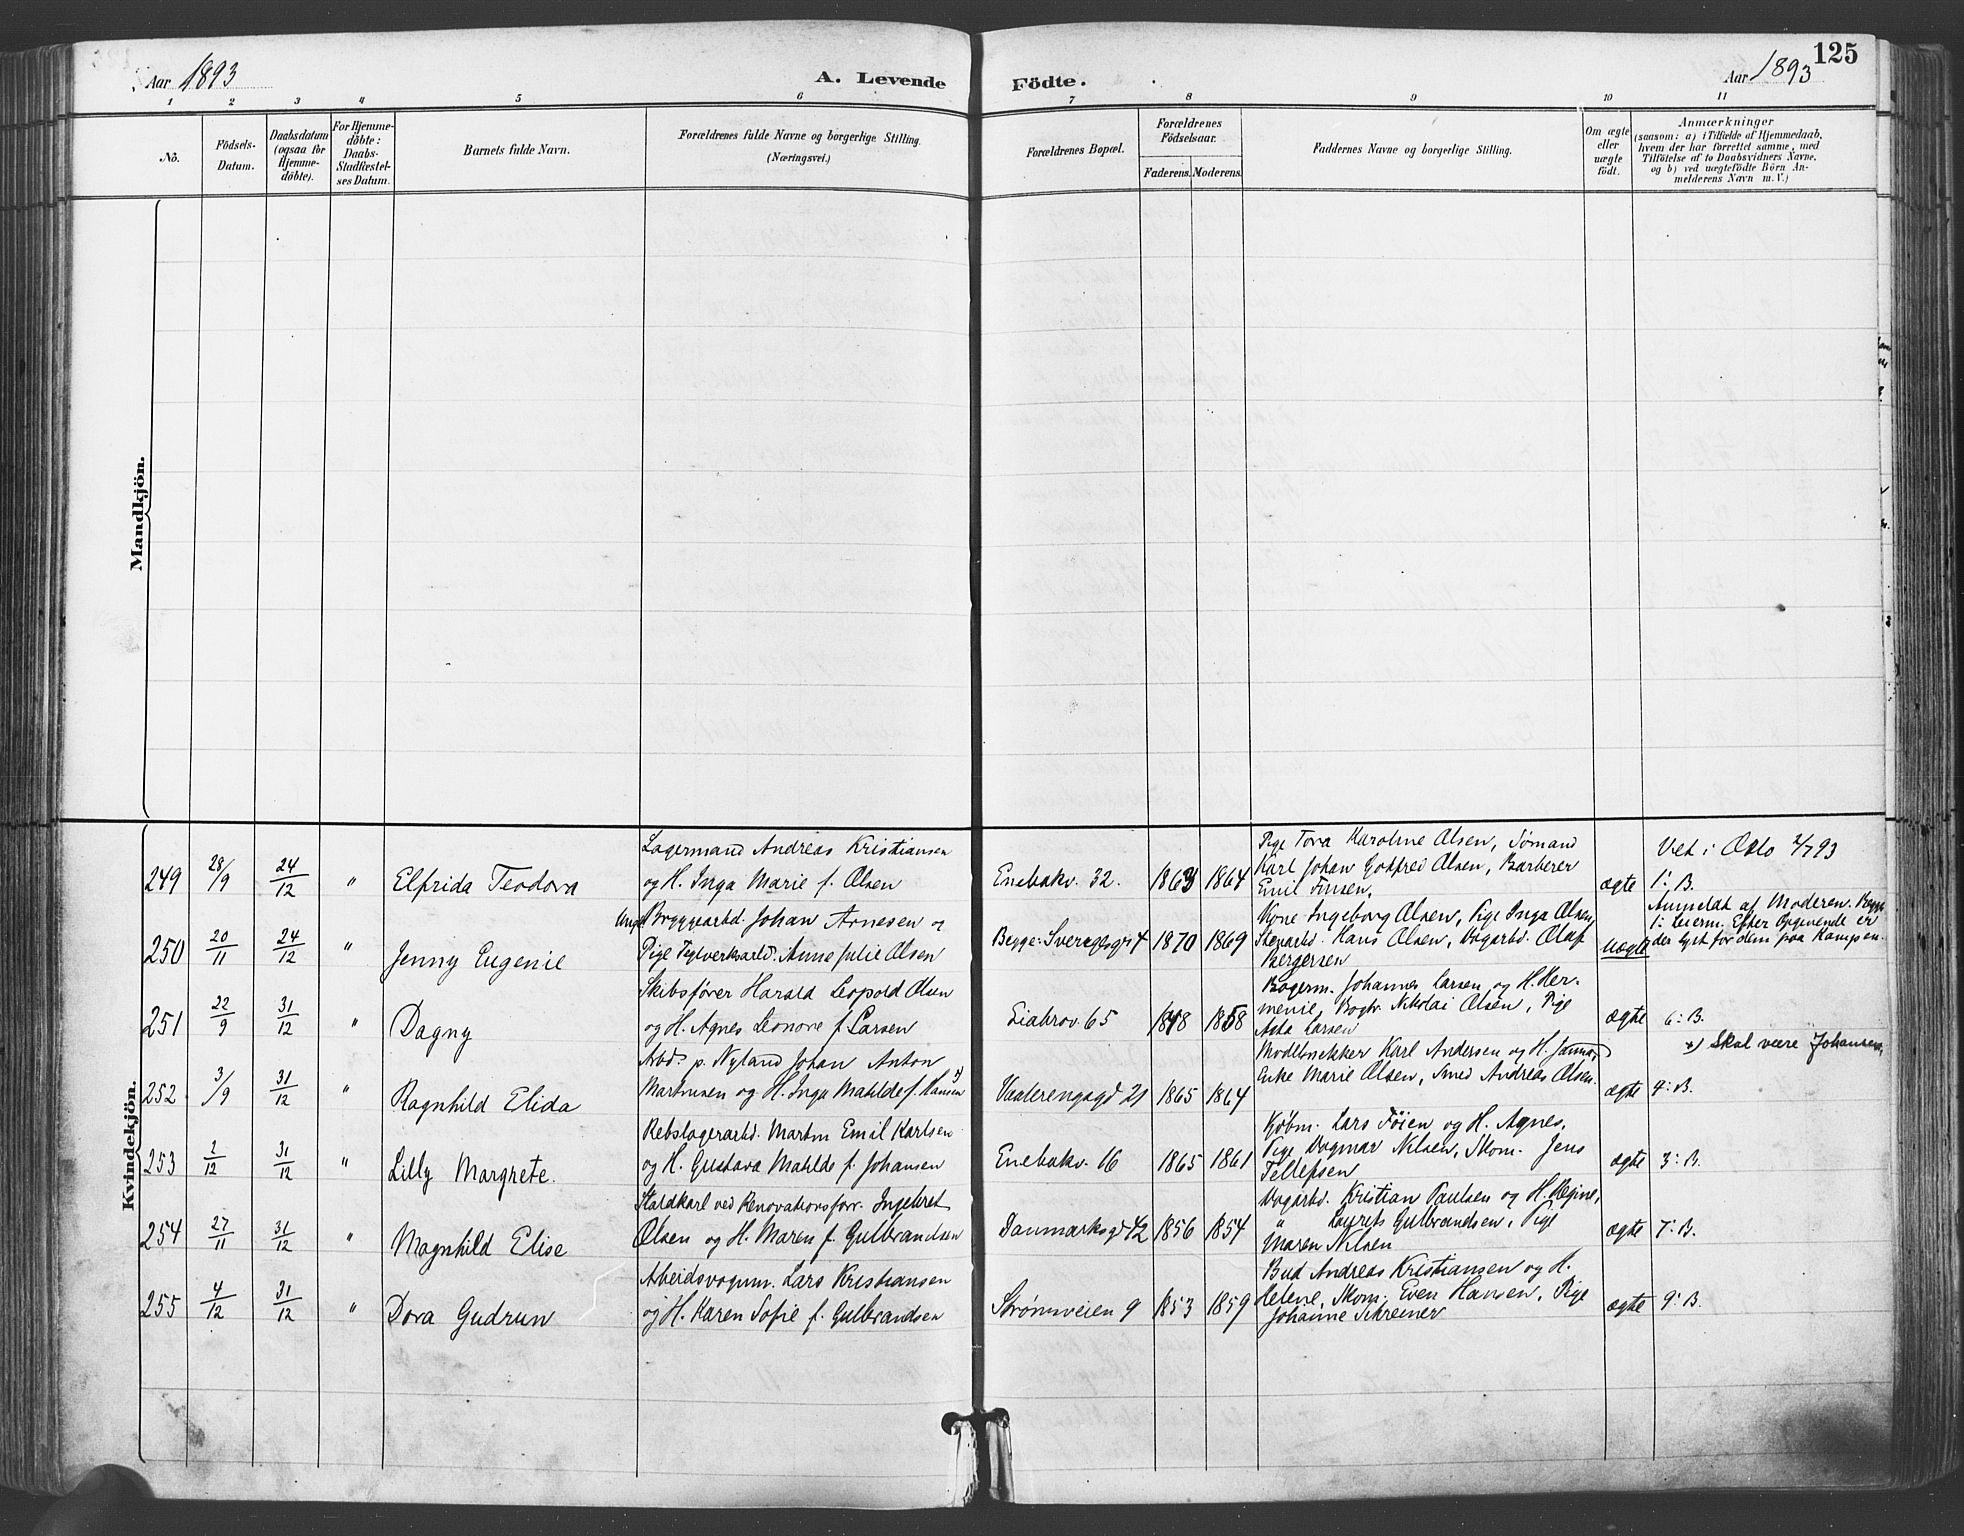 125
Aar 1893
A. Levende Födte.
Aar 1893
1 2 3 4 5 6 7 8 9 10 11
No.
Födsels-
Datum.
Daabsdatum
(ogsaa for
Hjemme-
döbte).
For Hjemme-
döbte:
Daabs-
Stadfæstel-
ses Datum.
Barnets fulde Navn.
Forældrenes fulde Navne og borgerlige Stilling.
(Næringsvei.)
Forældrenes Bopæl.
Forældrenes
Födselsaar.
Faderens. Moderens.
Faddernes Navne og borgerlige Stilling.
Om ægte
eller
uægte
födt.
Anmærkninger
(saasom: a) i Tilfælde af Hjemmedaab,
hvem der har forrettet samme, med
Tilföielse af to Daabsvidners Navne,
og b) ved uægtefödte Börn An-
melderens Navn m. V.)
Mandkjön.
Kvindekjön.
249 28/9 24/12 " Elfrida Teodora
Lagermand Andreas Kristiansen
og H. Inga Marie f. Olsen
Enebakv. 32. 1863 1864
Pige Tora Karoline Olsen, Sømand
Karl Johan Gotfred Olsen, Barberer
Emil Finsen.
ægte
Vet i Oslo 2/7 93
1: B.
250 20/11 24/12 " Jenny Eugenie
Ungk. Bryggearbd. Johan Arnesen og
Pige Teglverksarbd. Anne Julie Olsen
Begge: Sverigesgt 4 1870 1869
Kone Ingeborg Olsen, Pige Inga Olsen,
Stenarbd. Hans Olsen, Vogarbd. Olaf
Bergersen
uægte
Anmeldt af Moderen. Begge
1: Leierm. Efter Opgivende er
der lyst for dem paa Kampen.
251 22/9 31/12 " Dagny
Skibsfører Harald Leopold Olsen
og H. Agnes Leonore f. Larsen
Eiabrov. 65 1848 1858
Bogerm. Johannes Larsen og H. Her-
menie, Bogbr. Nikolai Olsen, Pige
Asta Larsen
ægte 6: B.
252 3/9 31/12 " Ragnhild Elida
Arbd. p. Nyland Johan Anton
Martinsen og H. Inga Matilde f. Hansen x)
Vaalerengagd 21 1865 1864
Modelsnekker Karl Andersen og H. Janna,
Enke Marie Olsen, Smed Andreas Olsen.
ægte 4: B.
x) Skal være Johansen.
253 2/12 31/12 " Lilly Margrete.
Rebslagerarbd. Martin Emil Karlsen
og H. Gustava Matilde f. Johansen
Enebakv. 16 1865 1861
Kjøbm. Lars Føien og H. Agnes,
Pige Dagmar Nilsen, Skom. Jens
Tellefsen
ægte 3: B.
254 27/11 31/12 " Magnhild Elise
Staldkarl ved Renovationsforv. Ingebret
Olsen og H. Maren f. Gulbrandsen
Danmarksgd 42 1856 1854
Vogarbd. Kristian Paulsen og H. Regine,
" Laurits Gulbrandsen, Pige
Maren Nilsen
ægte 7: B.
255 4/12 31/12 " Dora Gudrun
Arbeidsvognm. Lars Kristiansen
og H. Karen Sofie f. Gulbrandsen
Strømsveien 9 1853 1859
Bud Andreas Kristiansen og H.
Helene, Skom. Even Hansen, Pige
Johanne Schreiner
ægte 9: B.